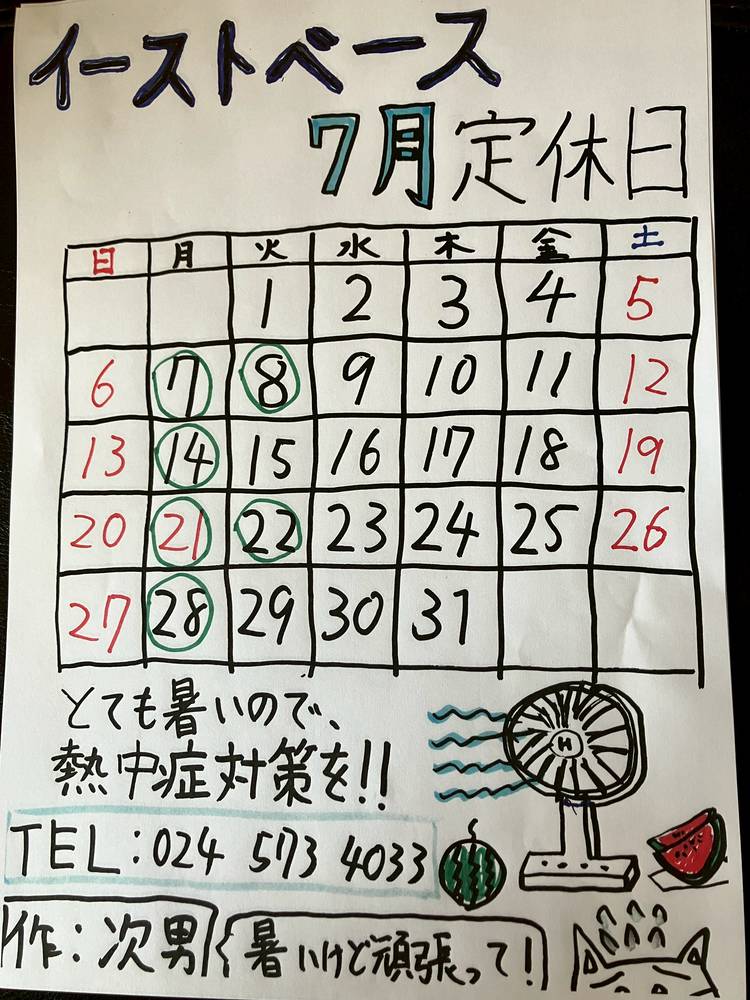 イーストベース
7月定休日
日 月 火 水 木 金 土
1 2 3 4 5
6 7 8 9 10 11 12
13 14 15 16 17 18 19
20 21 22 23 24 25 26
27 28 29 30 31
とても暑いので、
熱中症対策を!!
H
TEL:024 573 4033
作:次男 暑いけど頑張って!